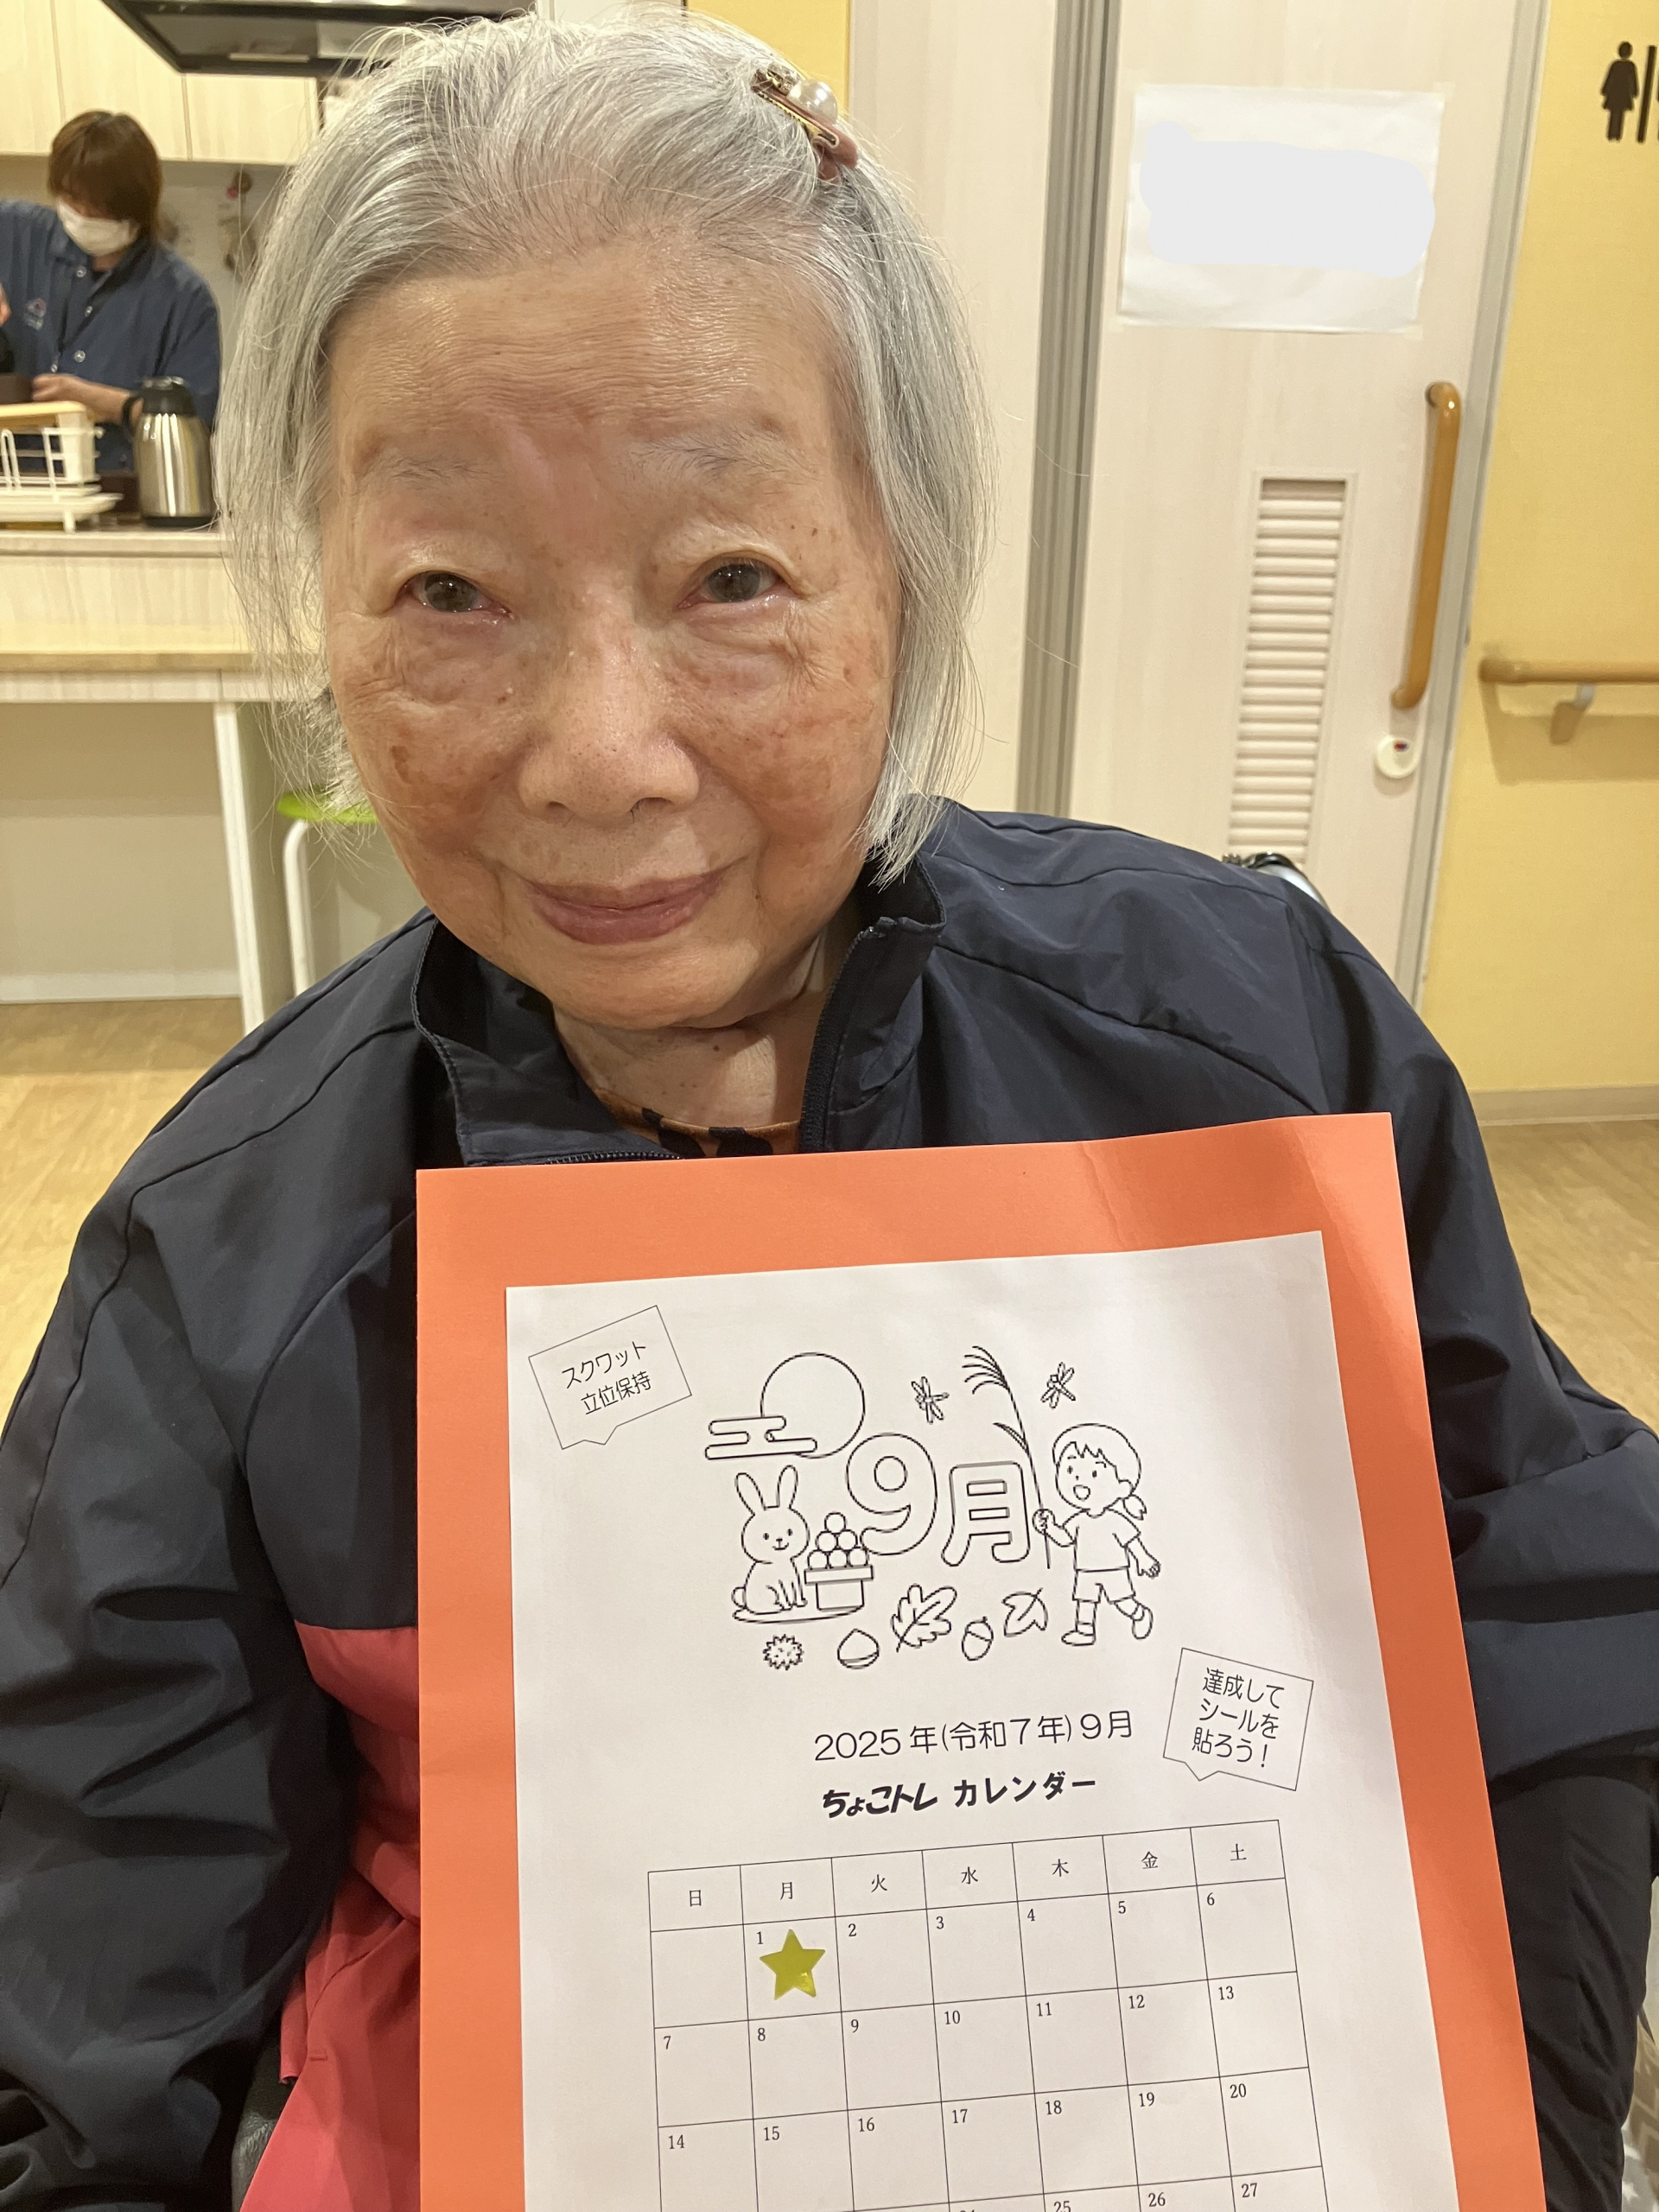 スクワット
立位保持
9月
達成して
シールを
貼ろう!
2025年(令和7年)9月
ちょこトレ カレンダー
日 月 火 水 木 金 土
1 2 3 4 5 6
7 8 9 10 11 12 13
14 15 16 17 18 19 20
25 26 27